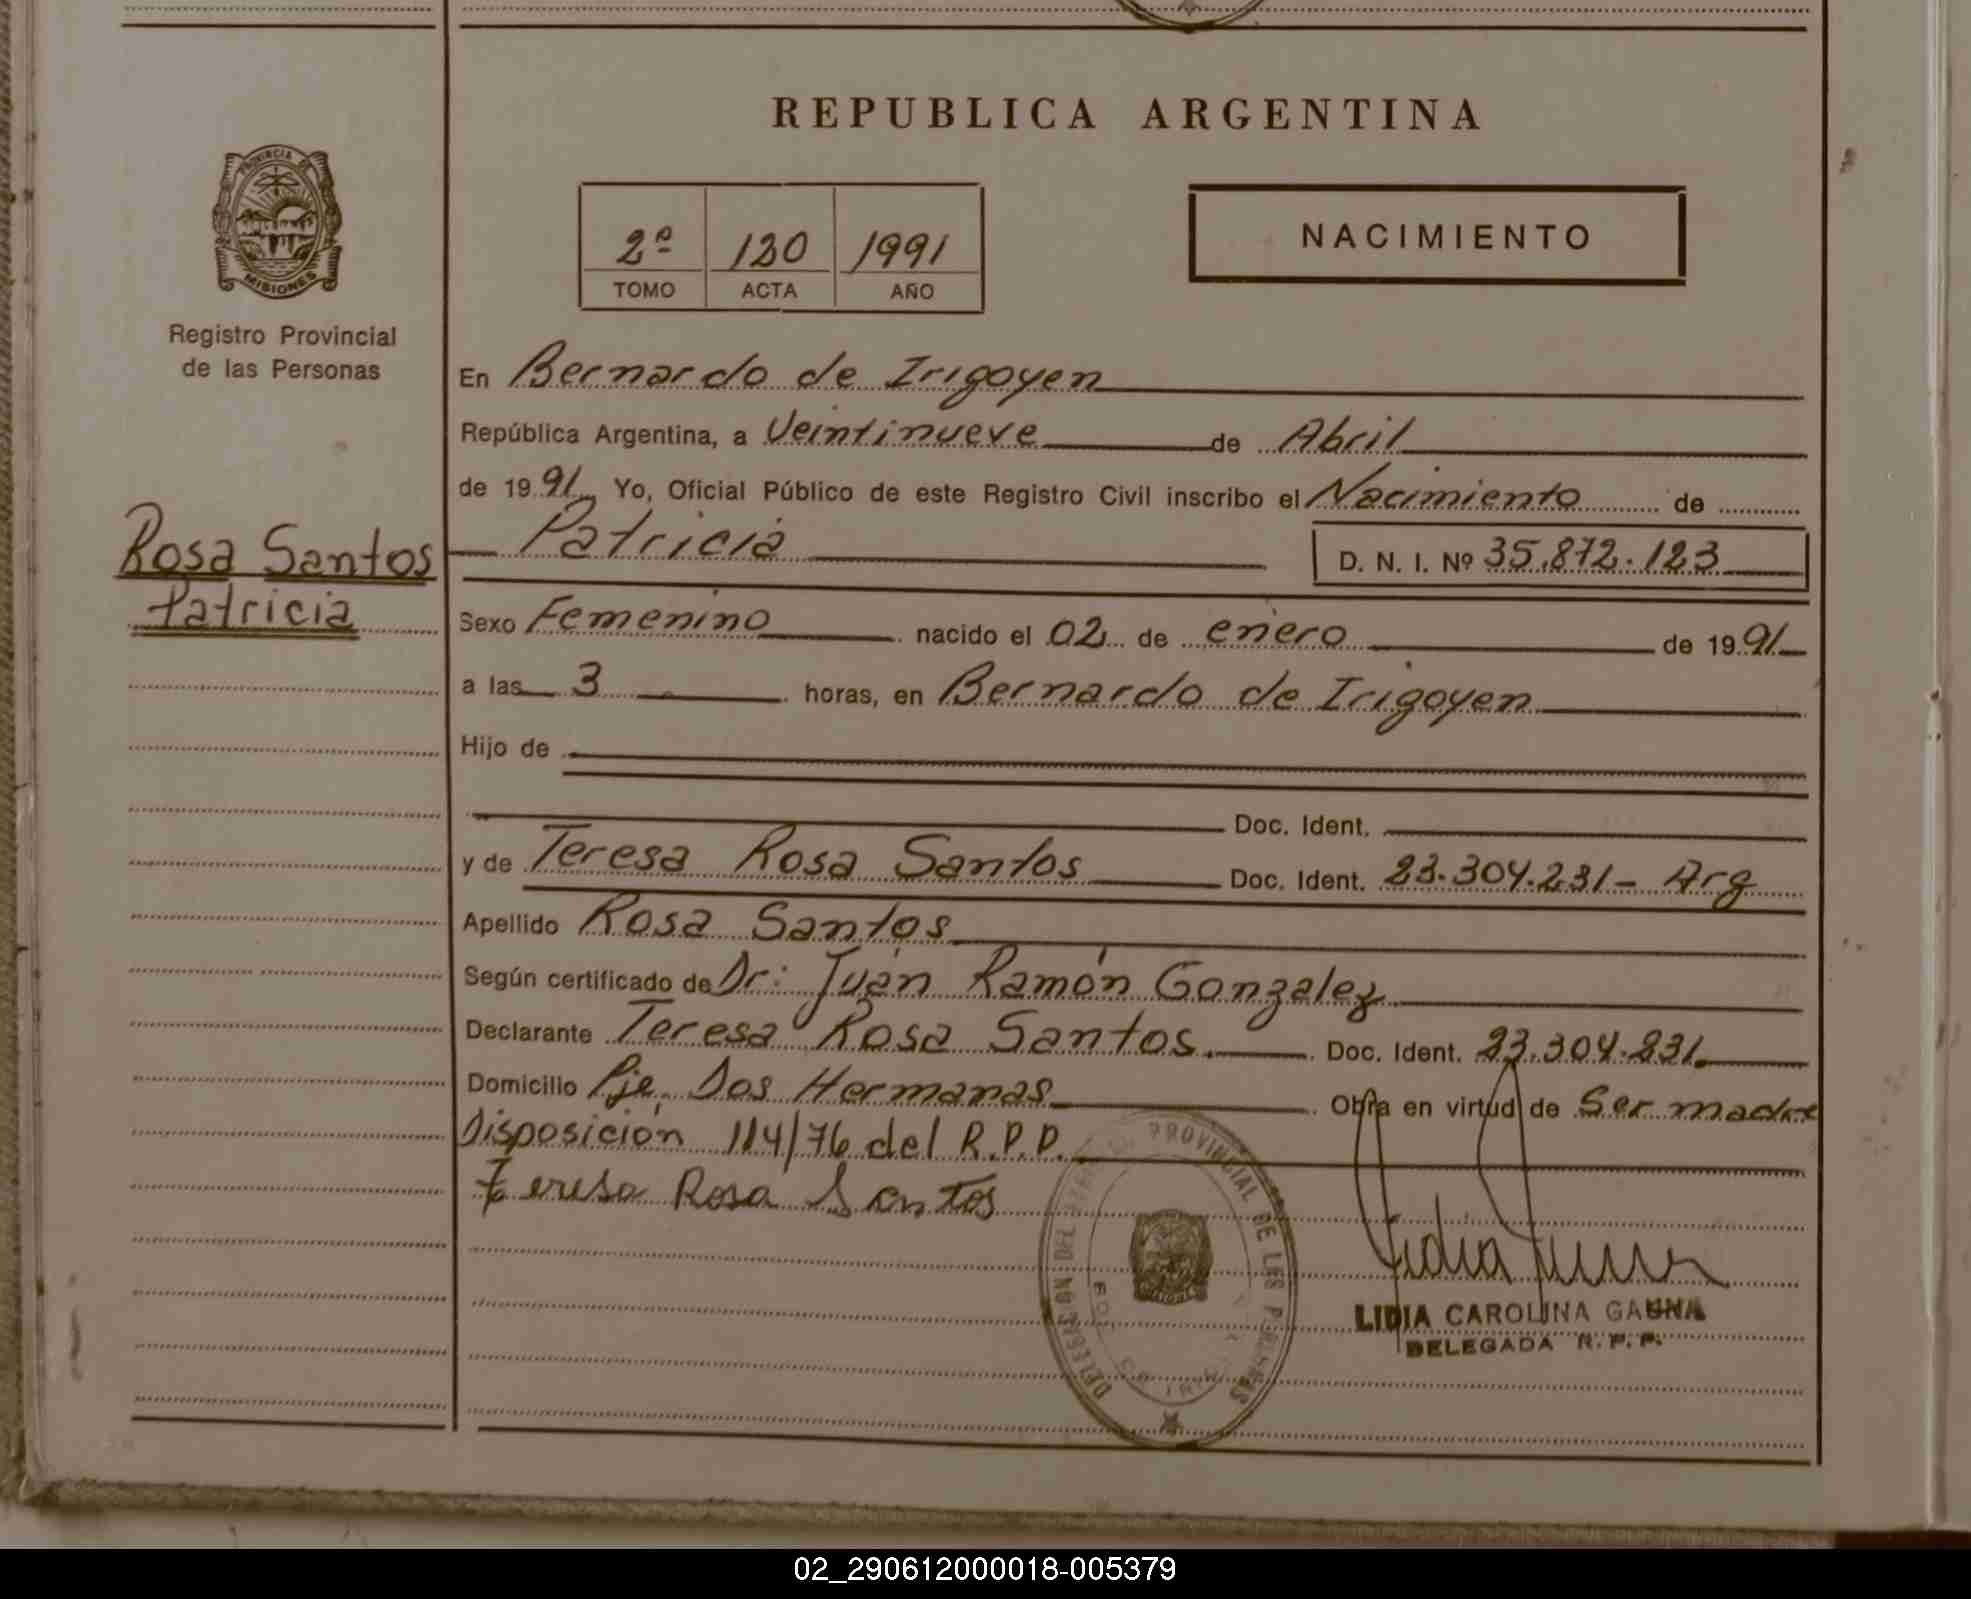 REPUBLICA ARGENTINA
PROVINCIA DE
MISIONES
Registro Provincial
de las Personas
2º 120 1991
TOMO ACTA AÑO
NACIMIENTO
En Bernardo de Irigoyen
República Argentina, a Veintinueve de Abril
de 1991 Yo, Oficial Público de este Registro Civil inscribo el Nacimiento de
Rosa Santos
Patricia
Patricia
D. N. I. Nº 35.872.123
Sexo Femenino nacido el 02 de enero de 1991
a las 3 horas, en Bernardo de Irigoyen
Hijo de
Doc. Ident.
y de Teresa Rosa Santos Doc. Ident. 23.304.231- Arg
Apellido Rosa Santos
Según certificado de Dr: Juán Ramón Gonzalez
Declarante Teresa Rosa Santos Doc. Ident. 23.304.231
Domicilio Pje. Dos Hermanas Obra en virtud de Ser madre
Disposición 114/76 del R.P.P.
Teresa Rosa Santos
DELEGACION DEL PROVINCIAL DE LAS PERSONAS
LIDIA CAROLINA GAUNA
DELEGADA R.P.P.
02_290612000018-005379